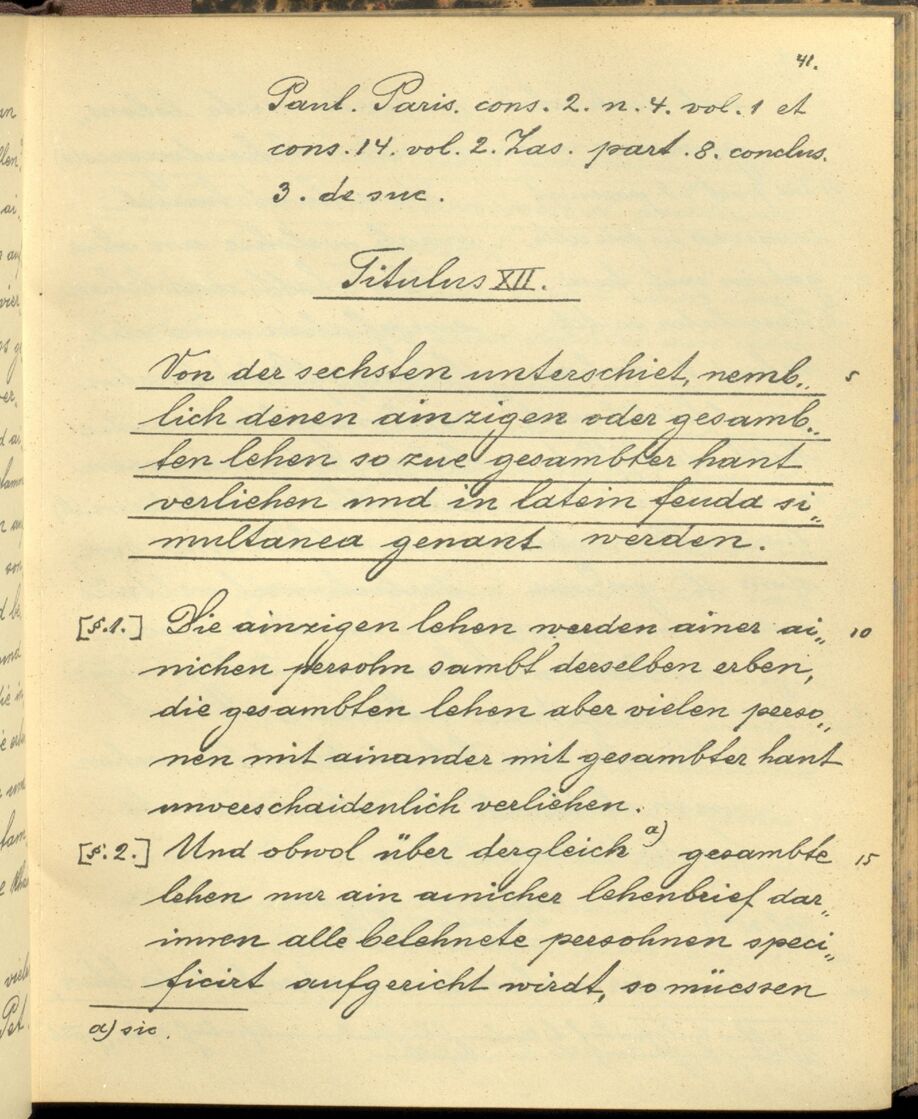 41.
Paul. Paris. cons. 2. n. 4. vol. 1 et
cons. 14. vol. 2. Zas. part. 8. conclus.
3. de suc.
Titulus XII.
Von der sechsten unterschiet, nemb„ 5
lich denen ainzigen oder gesamb„
ten lehen so zue gesambter hant
verliehen und in latein feuda si„
multanea genant werden.
[§.1.] Die ainzigen lehen werden ainer ai„ 10
nichen persohn sambt derselben erben,
die gesambten lehen aber vielen perso„
nen mit ainander mit gesambter hant
unverschaidenlich verliehen.
[§.2.] Und obwol über dergleich a) gesambte 15
lehen nur ain ainicher lehenbrief dar„
innen alle belehnete persohnen speci„
ficirt aufgericht wirdt, so müessen
a) sic.